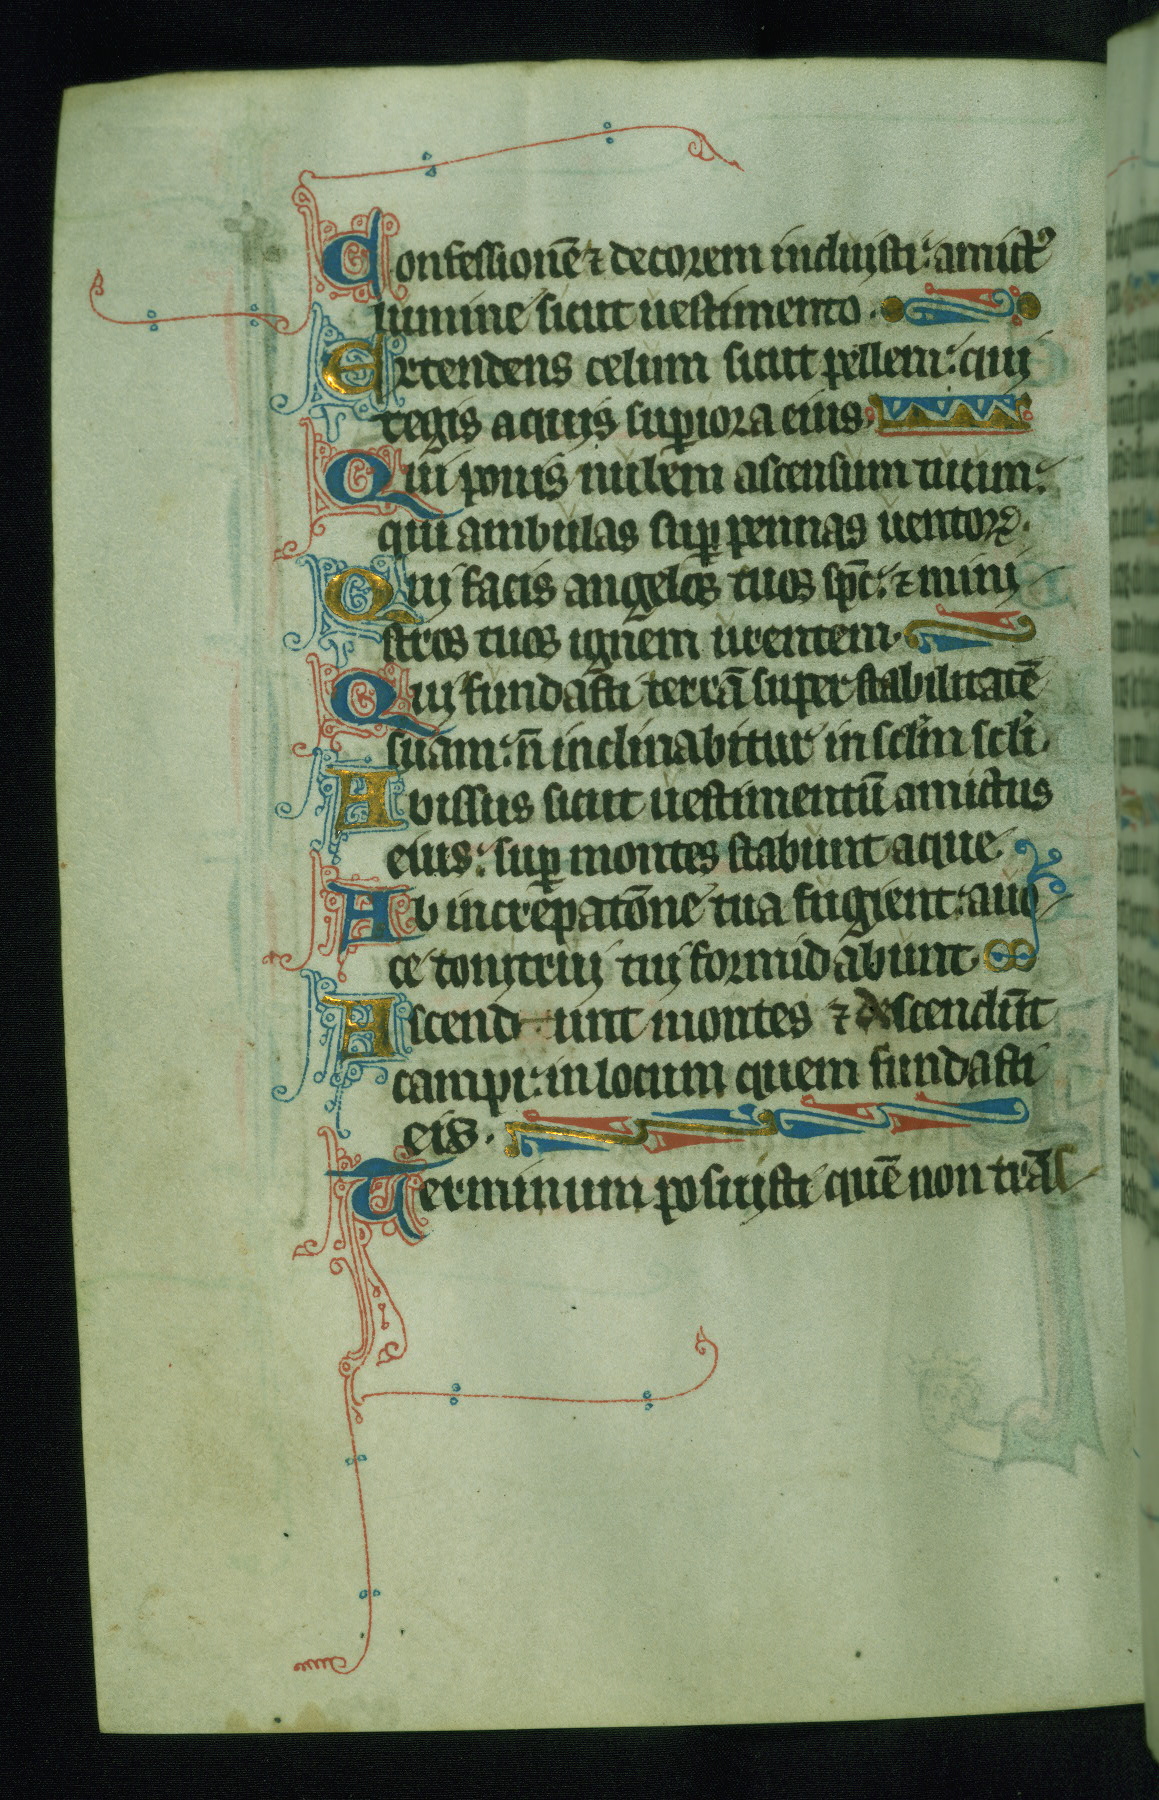 Confessionē ⁊ decorem induisti: amictꝰ
lumine sicut uestimento.
Extendens celum sicut pellem: qui
tegis aquis suꝑiora eius.
Qui ponis nubem ascensum tuum:
qui ambulas suꝑ pennas uentoꝝ.
Qui facis angelos tuos sp̄c: ⁊ mini
stros tuos ignem urentem.
Qui fundasti terrā super stabilitatē
suam: n̄ inclinabitur in sclm̄ scli.
Abissus sicut uestimentū amictus
eius: suꝑ montes stabunt aque
Ab increpatōne tua fugient: a uo
ce tonitrui tui formidabunt
Ascendunt montes ⁊ descendūt
campi: in locum quem fundasti
eis.
Terminum posuisti quē non trās